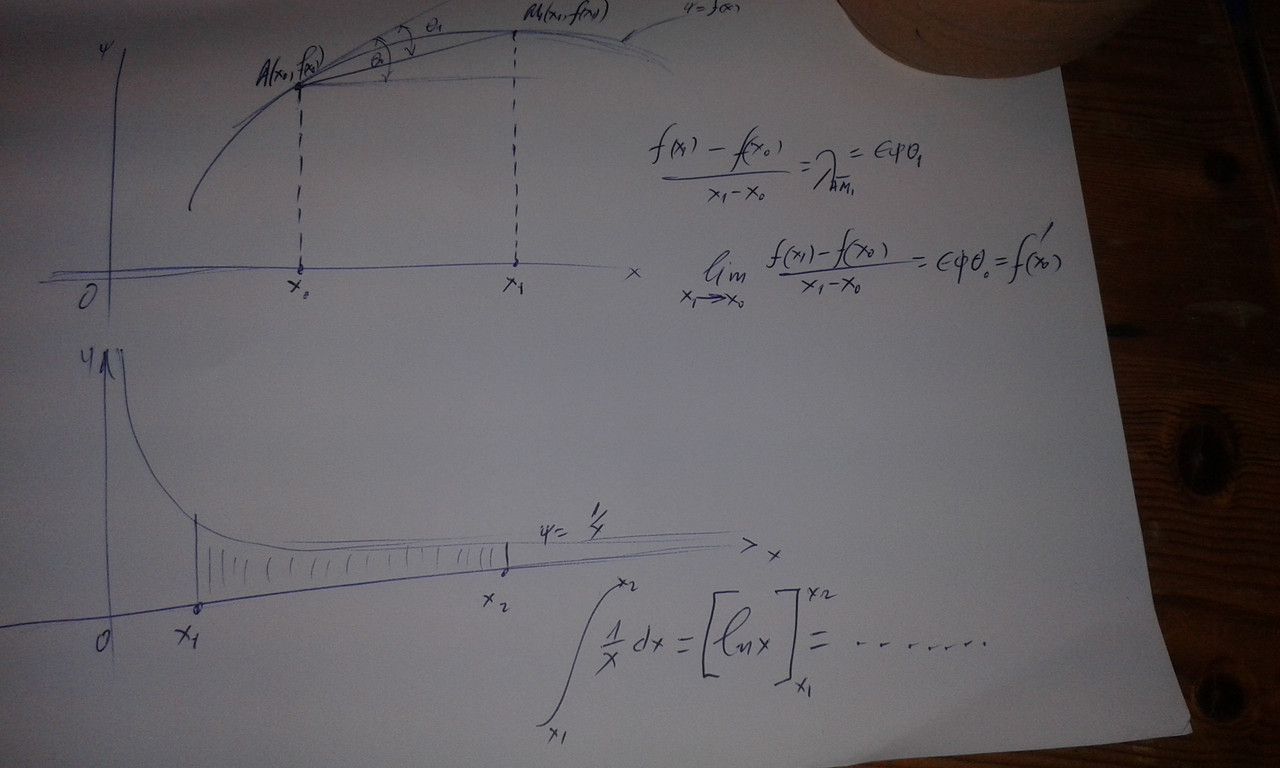 ψ
A(x₀, f(x₀))
M₁(x₁, f(x₁))
ψ=f(x)
θ₁
θ₀
0
x₀
x₁
x
f(x₁) − f(x₀) / x₁−x₀ = λ_AM₁ = εφθ₁
lim x₁→x₀ f(x₁)−f(x₀) / x₁−x₀ = εφθ₀ = f′(x₀)
ψ
ψ= 1/x
x
0
x₁
x₂
∫ x₁ x₂ 1/x dx = [ln x] x₁ x₂ = .......